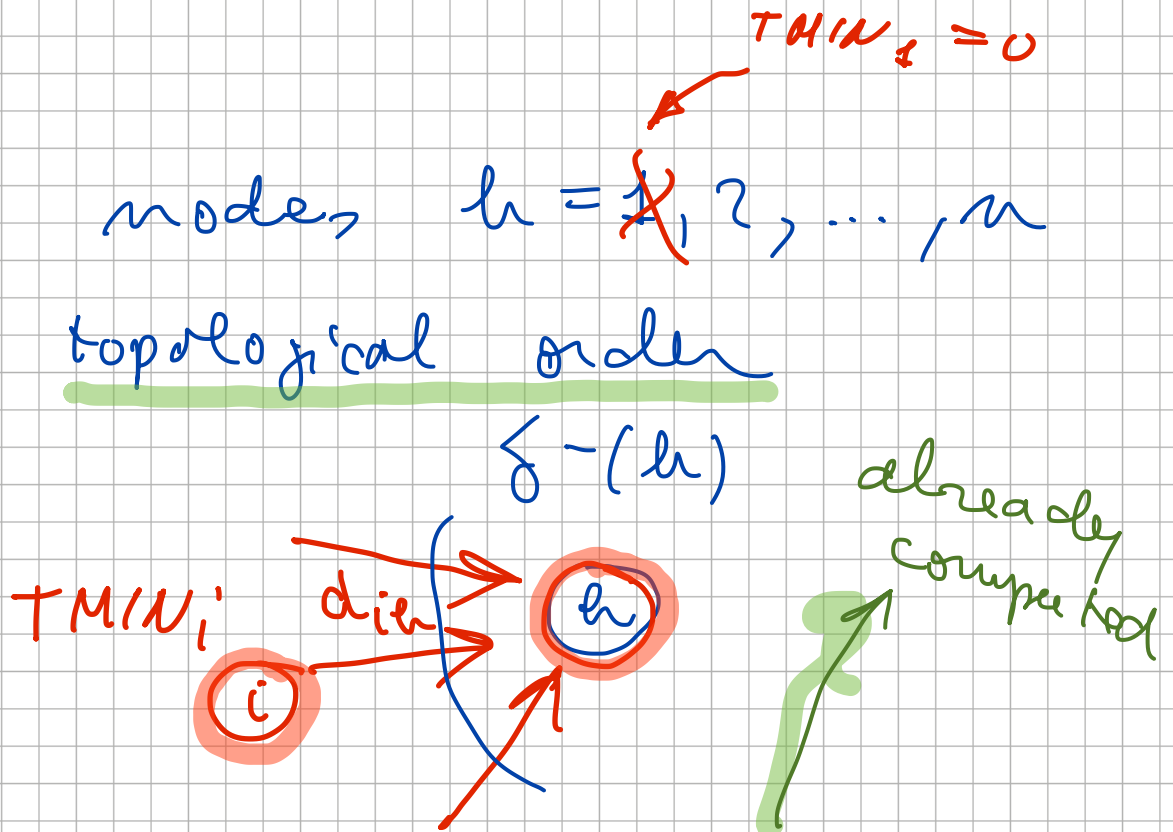 TMIN₁ = 0
nodes h = 1, 2, ..., n
topological order
δ-(h)
already
computed
TMINᵢ dᵢₕ h
i